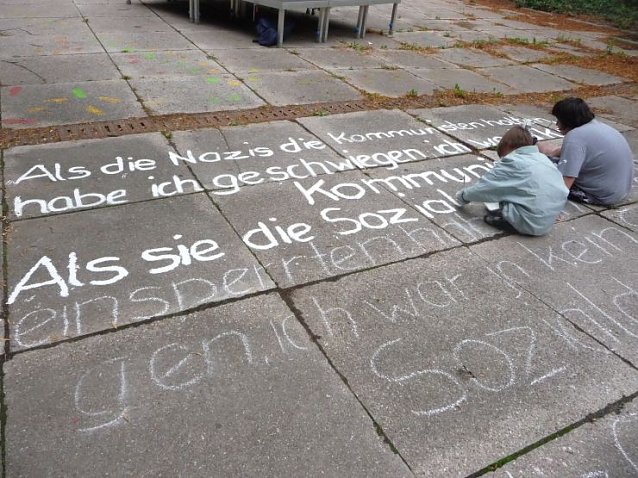 Als die Nazis die Kommunisten holten
habe ich geschwiegen ich
Kommuni
Als sie die Sozial
einsperrten
gen, ich war kein
Soziald